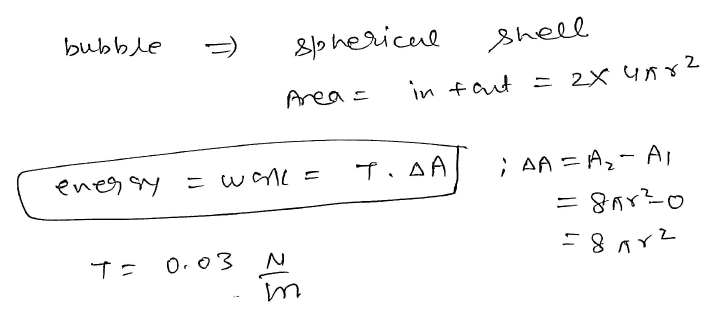 bubble ⇒ spherical shell
Area = in + out = 2 × 4πr²
energy = work = T. ΔA ; ΔA = A₂ - A₁
= 8πr² - 0
= 8πr²
T = 0.03 N/m